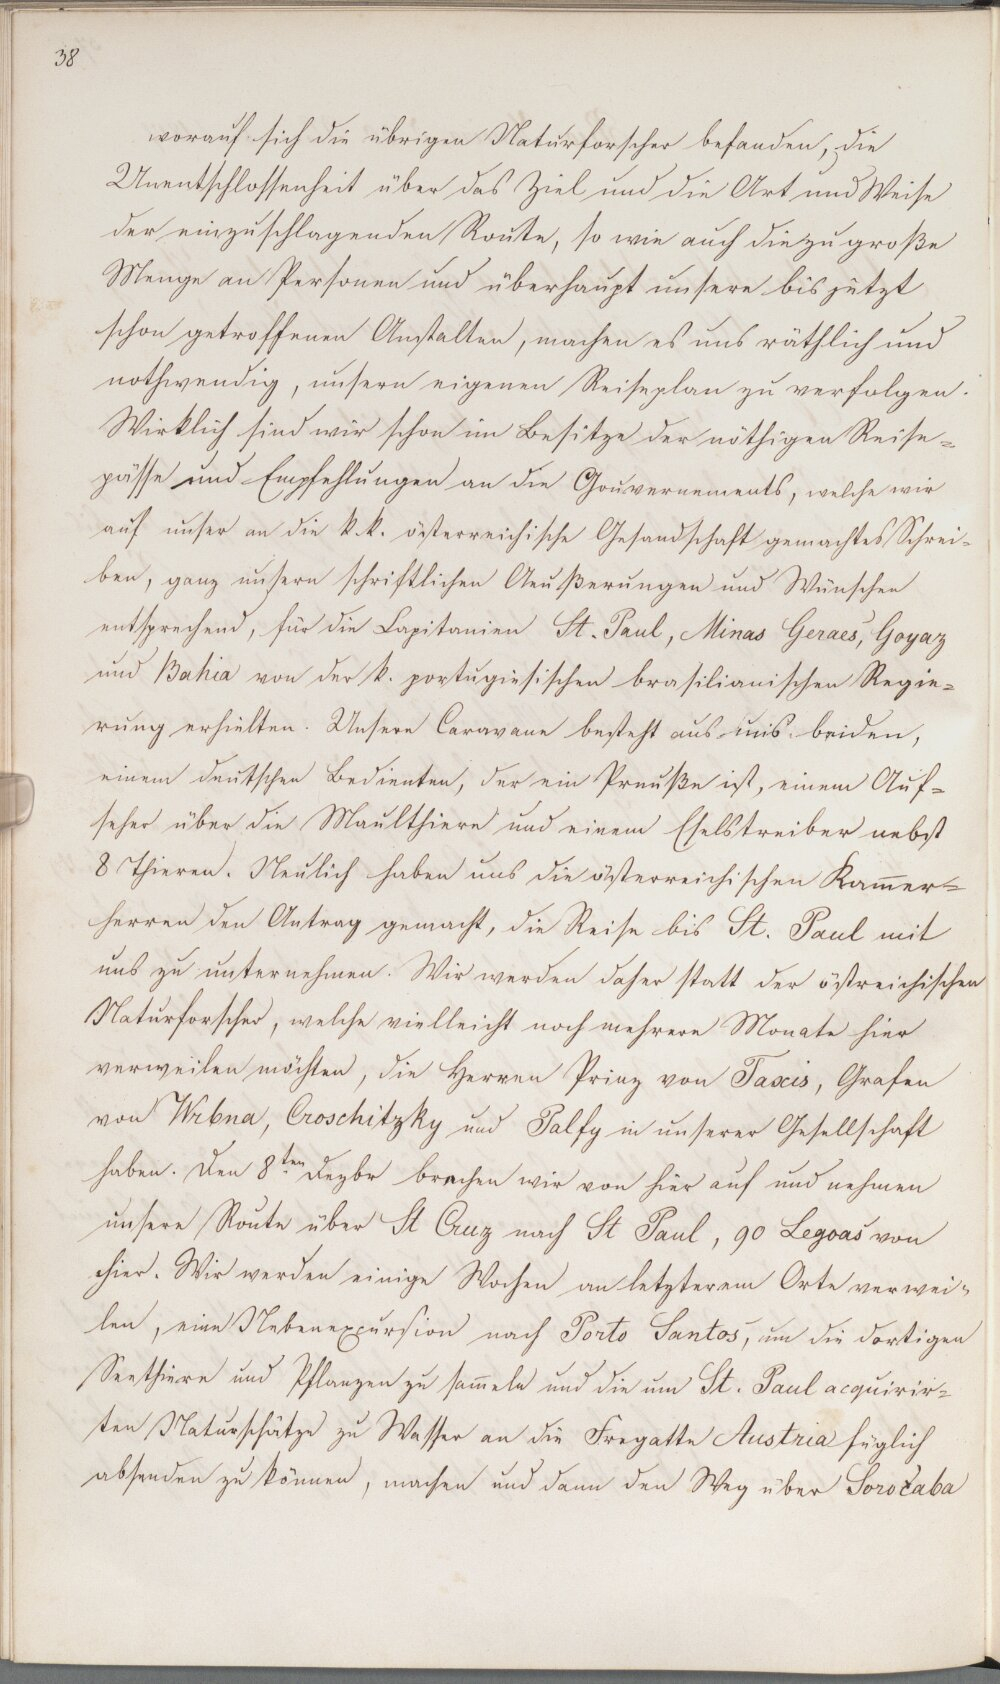 38
worauf sich die übrigen Naturforscher befanden, die
Unentschlossenheit über das Ziel und die Art und Weise
der einzuschlagenden Route, so wie auch die zu große
Menge an Personen und überhaupt unsere bis jetzt
schon getroffenen Anstalten, machen es uns räthlich und
nothwendig, unsern eigenen Reiseplan zu verfolgen.
Wirklich sind wir schon im Besitze der nöthigen Reise-
pässe und Empfehlungen an die Gouvernements, welche wir
auf unser an die k. k. österreichische Gesandschaft gemachtes Schrei-
ben, ganz unsern schriftlichen Aeußerungen und Wünschen
entsprechend, für die Capitanien St. Paul, Minas Geraes, Goyaz
und Bahia von der k. portugiesischen brasilianischen Regie-
rung erhielten. Unsere Caravane besteht aus uns beiden,
einem deutschen Bedienten, der ein Preuße ist, einem Auf-
seher über die Maulthiere und einem Eselstreiber nebst
8 Thieren. Neulich haben uns die österreichischen Kam̄er-
herren den Antrag gemacht, die Reise bis St. Paul mit
uns zu unternehmen. Wir werden daher statt der östreichischen
Naturforscher, welche vielleicht noch mehrere Monate hier
verweilen möchten, die Herren Prinz von Taxis, Grafen
von Wrbna, Croschitzky und Palfy in unserer Gesellschaft
haben. Den 8ten Dezbr brechen wir von hier auf und nehmen
unsere Route über St Cruz nach St Paul, 90 Legoas von
hier. Wir werden einige Wochen an letzterem Orte verwei-
len, eine Nebenexcursion nach Porto Santos, um die dortigen
Seethiere und Pflanzen zu sam̄eln und die um St. Paul acquirir-
ten Naturschätze zu Wasser an die Fregatte Austria füglich
absenden zu können, machen und dann den Weg über Sorocaba